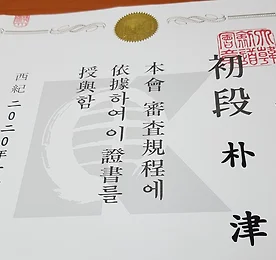 初段
朴 津
本會 審査規程에
依據하여 이 證書를
授與함
西紀 二〇二〇年